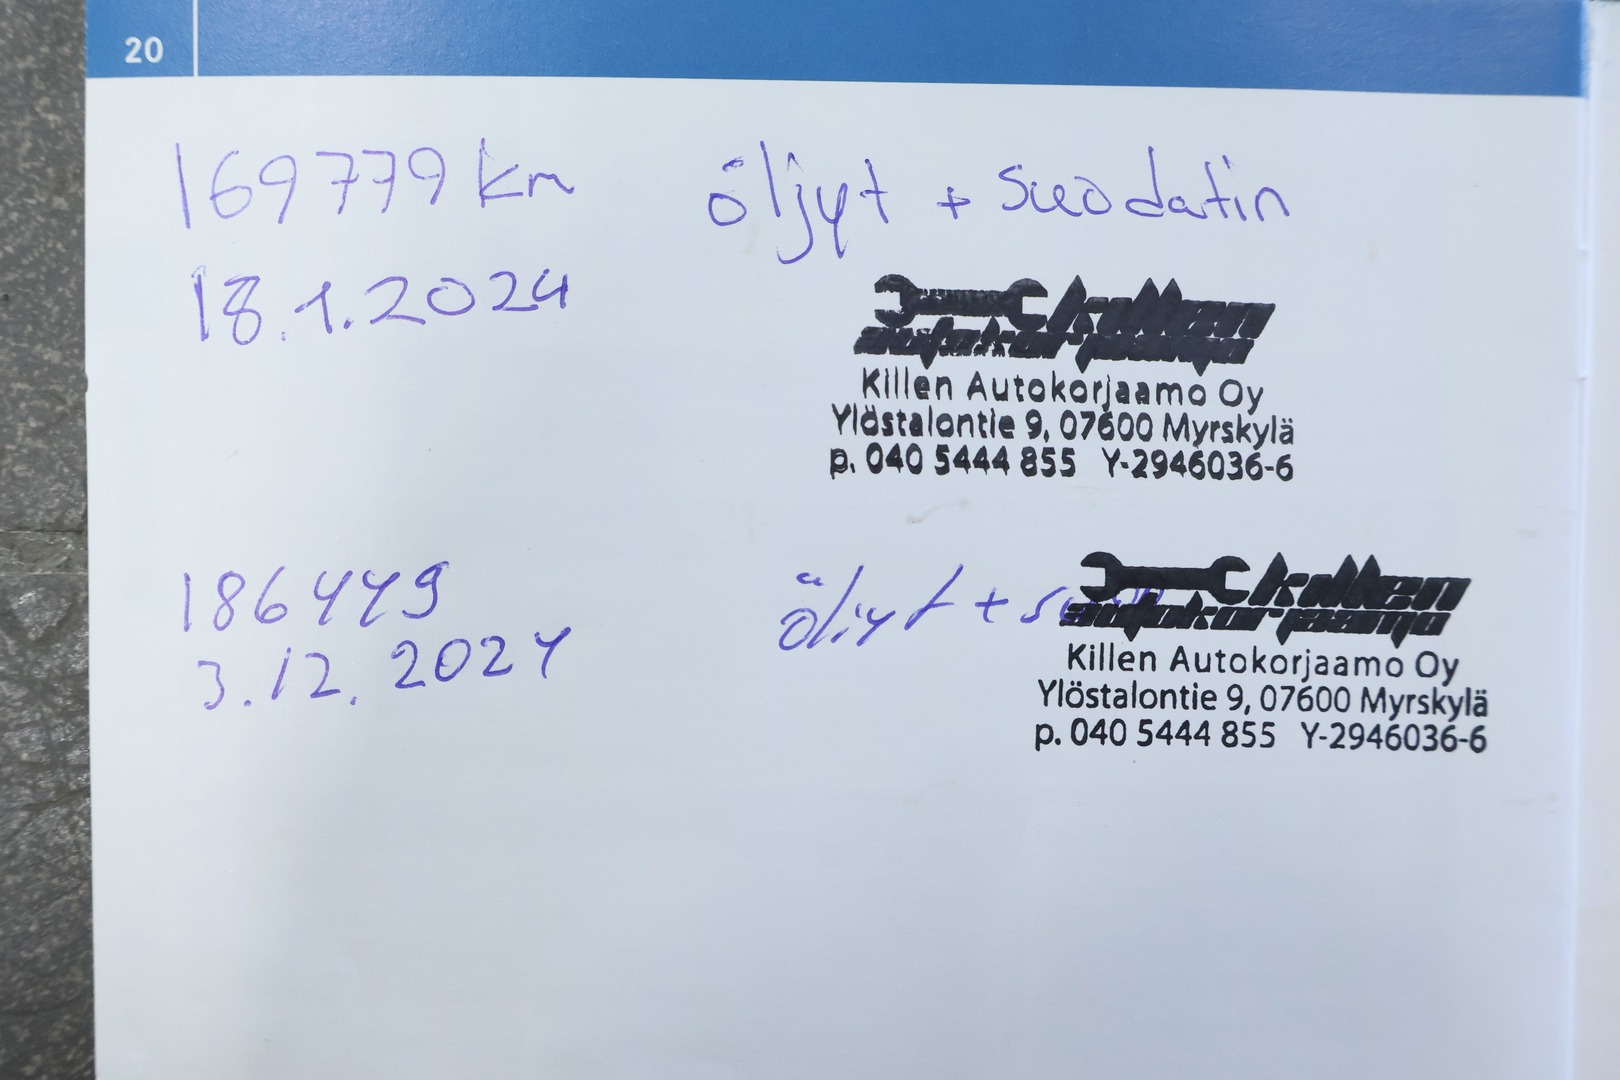 20
169779 km öljyt + suodatin
18.1.2024
killen
autokorjaamo
Killen Autokorjaamo Oy
Ylöstalontie 9, 07600 Myrskylä
p. 040 5444 855 Y-2946036-6
186449 öljyt +
3.12.2024
killen
autokorjaamo
Killen Autokorjaamo Oy
Ylöstalontie 9, 07600 Myrskylä
p. 040 5444 855 Y-2946036-6